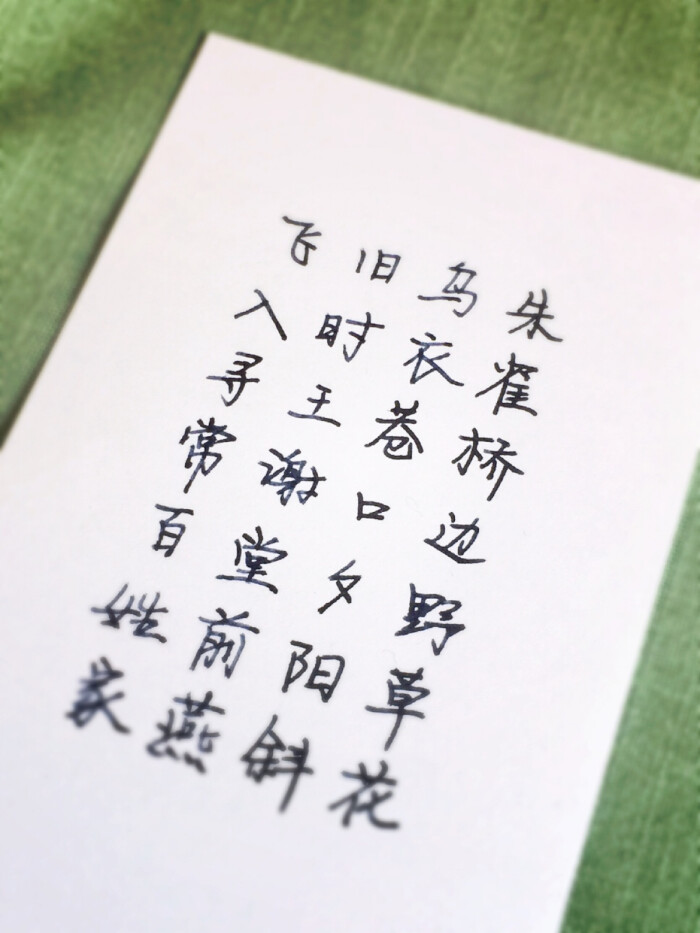 朱雀桥边野草花
乌衣巷口夕阳斜
旧时王谢堂前燕
飞入寻常百姓家